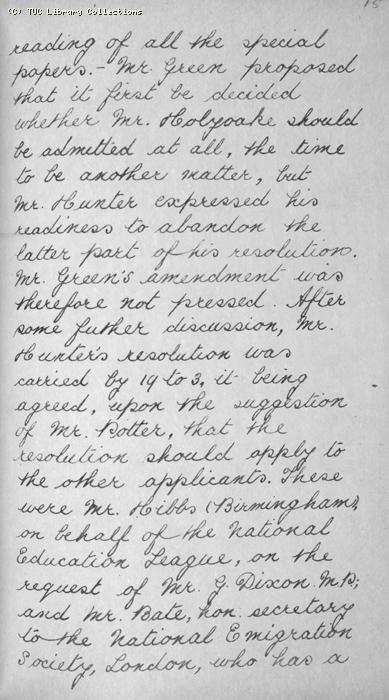 (C) TUC Library Collections
15
reading of all the special
papers. - Mr. Green proposed
that it first be decided
whether Mr. Holyoake should
be admitted at all, the time
to be another matter, but
Mr. Hunter expressed his
readiness to abandon the
latter part of his resolution.
Mr. Green's amendment was
therefore not pressed. After
some futher discussion, Mr.
Hunter's resolution was
carried by 19 to 3, it being
agreed, upon the suggestion
of Mr. Potter, that the
resolution should apply to
the other applicants. These
were Mr. Hibbs (Birmingham),
on behalf of the National
Education League, on the
request of Mr. G. Dixon M.P.;
and Mr. Bate, hon. secretary
to the National Emigration
Society, London, who has a